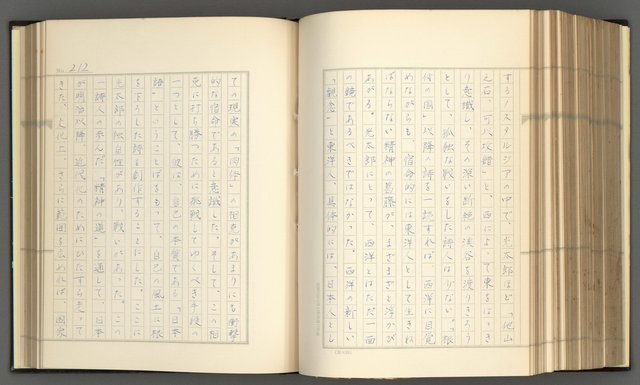 するノスタルジアの中で、光太郎ほど「他山
之石、可以攻錯」と、西によって東をはっき
り意識し、その深い断絶の渓谷を渡りきろう
として、孤独な戦いをした詩人は少ない。「根
付の国」以降の詩を一読すれば、西洋に目覚
めながらも、宿命的には東洋人として生きね
ばならない精神の葛藤が、まざまざと浮かび
あがる。光太郎にとって、西洋とはただ一面
の鏡であるべきではなかった。西洋の新しい
「観念」と東洋人、具体的には、日本人とし
No. 212
ての現実の「肉体」の相克があまりにも衝撃
的な宿命であると意識した。そして、この相
克に打ち勝つために挑戦してゆくべき手段の
一つとして、彼は、自己の本質である「日本
語」ということばをもって、自己の風土に根
を下ろした詩を創作することにした。ここに
光太郎の独自性があり、戦いがあった。この
一詩人の歩んだ「精神の道」を通して、日本
が明治以降、近代化のためにひたすら走って
きた、文化上、さらに範囲を広めれば、国家